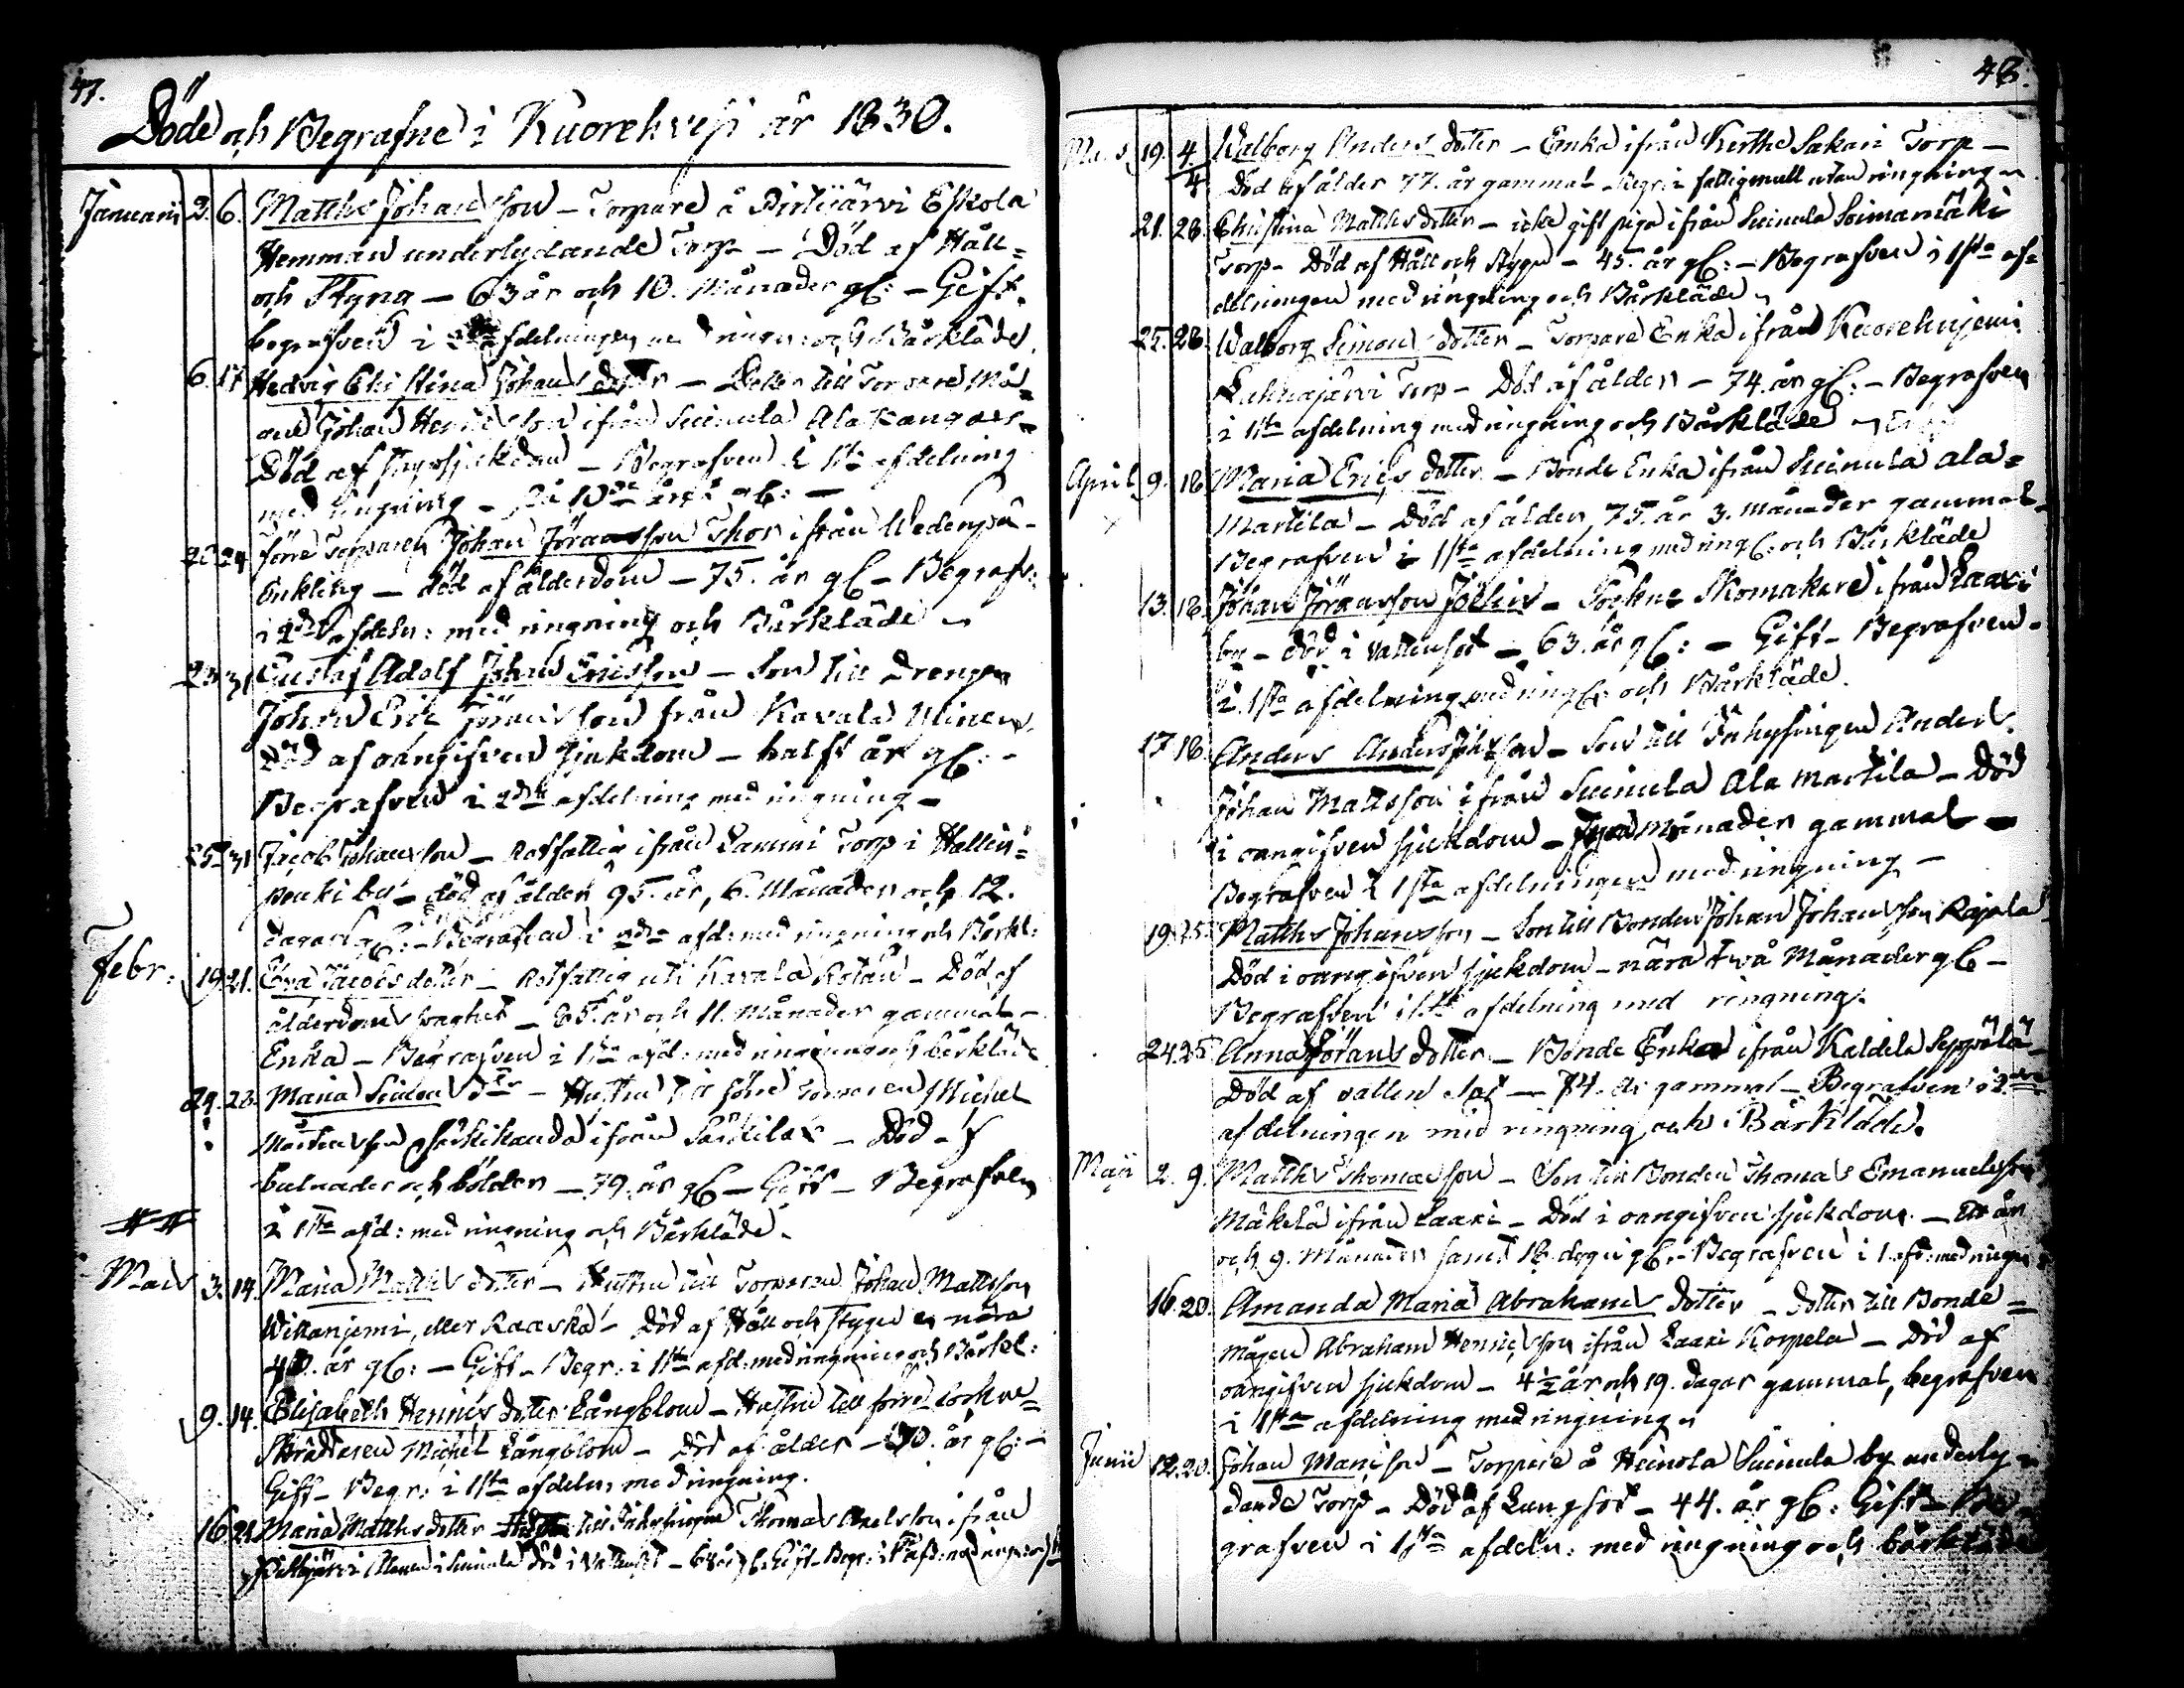 47.
Döde och Begrafne i Kuorehvesi år 1830.
Januarii 2. 6. Matths Johansson – Torpare å Pirttijärvi Eskola
Hemman underlydande Torp – Död af Håll=
och Styng – 63 år och 10. Månader gl: – Gift.
begrafven i afdelningen med ringn: och Bårkläde.
6. 17 Hedvig Christina Johans dotter – Dotter till Torpare Må=
gen Johan Henricsson ifrån Suinula Alakangas –
Död af sjukdom – Begrafven i 1sta afdelning
med ringning – på 10de året gl: –
24. förre Torparen Johan Jöransson Thor ifrån
Enkling – död af ålderdom – 75. år gl – Begrafv:
i 2dra afdeln: med ringning och Bårkläde
23 31 Gustaf Adolf Johan Ericsson – Son till Drengen
Johan Eric Jöransson från Kavala Ylinen
Död af oangifven sjukdom – halft år gl: –
Begrafven i 2dra afdelning med ringning –
25. 31 Jacob Johansson – Rotfattig ifrån Lammi Torp i Hallin=
penki by – död af ålder 95. år, 6. Månader och 12.
dagar gl: – Begrafven i 2dra afd: med ringning och Bårkl:
Febr: 19. 21. Eva Jacobs dotter – Rotfattig uti Kavala Rotan – Död af
ålderdoms svaghet – 65. år och 11. Månader gammal –
Enka – Begrafven i 1sta afd: med ringning och bårkläde
24. 28. Maria Simons dtr – Hustru till förre Torparen Michel
Mårtensson ifrån Särkilax – Död af
bulnader och bölder – 79. år gl – Gift – Begrafven
i 1sta afd: med ringning och Bårkläde.
Mars 3. 14. Maria Matths dotter – Hustru till Torparen Johan Mattsson
Willanjemi, eller Raaska – Död af Håll och Styng nära
40. år gl: – Gift – Begr: i 1sta afd: med ringning och Bårkl:
9. 14. Elisabeth Henrics dotter Långblom – Hustru till förre Sockne=
Skräddaren Michel Långblom – Död af ålder – 70. år gl: –
Gift – Begr: i 1sta afdeln: med ringning.
16. 21. Maria Matths dotter till Inhysingen Thomas Axelsson ifrån
Pitkäjärvi i Suinula Död i Vattusot – år gl: Gift – Begr: i 1sta afd: med ringn:
48.
Mars 19. 4/4 Walborg Anders dotter – Enka ifrån Kerthe Sakari Torp –
Död af ålder 77. år gammal – Begr: i fattigmull utan ringning
21. 28. Christina Matths dotter – icke gift piga ifrån Suinula Soimamäki
Torp – Död af Håll och Styng – 45. år gl: – Begrafven i 1sta af=
delningen med ringning och Bårkläde
25. 28. Walborg Simons dotter – Torpare Enka ifrån Kuorehnjemi
Torp – Död af ålder – 74. år gl: – Begrafven
i 1sta afdelning med ringning och Bårkläde
April 9. 18 Maria Erics dotter – Bonde Enka ifrån Suinula ala=
Martila – Död af ålder, 75. år 3. månader gammal
Begrafven i 1sta afdelning med ringn: och Bårkläde
13. 18. Johan Jöransson Joelin – Sockne Skomakare ifrån Laaxi
by – död i vattusot – 63. år gl: – Gift – Begrafven –
i 1sta afdelning med ringn: och Bårkläde.
17 18. Anders Anders Johsson – Son till Inhysingen Anders
Johan Mattsson ifrån Suinula Ala Martila – Död
i oangifven sjukdom – Månader gammal –
Begrafven i 1sta afdelningen med ringning –
19. 25. Matths Johansson – Son till Bonden Johan Johansson Rajala
Död i oangifven sjukdom – nära två Månader gl –
Begrafven i 1sta afdelning med ringning.
24. 25 Anna Jörans dotter – Bonde Enka ifrån Kaldila Seppälä –
Död af vatten sot – 74. år gammal – Begrafven i 2dra
afdelningen med ringning och Bårkläde.
Maji 2. 9. Matths Thomasson – Son till Bonden Thomas Emanuelsson
Mäkelä ifrån Laaxi – Död i oangifven sjukdom – Ett år
och 9. Månader samt 18. dygn gl. Begrafven i 1. afd: med ringn:
16. 20. Amanda Maria Abrahams dotter – dotter till Bonde =
mågen Abraham Henricsson ifrån Laaxi Korpela – Död af
oangifven sjukdom – 4½ år och 19. dagar gammal, begrafven
i 1sta afdelning med ringning
Junii 12. 20. Johan Mansson – Torpare å Heinola Suinula by underly=
dande Torp – Död af Lungsot – 44. år gl: Gift – Be=
grafven i 1sta afdeln: med ringning och bårkläde